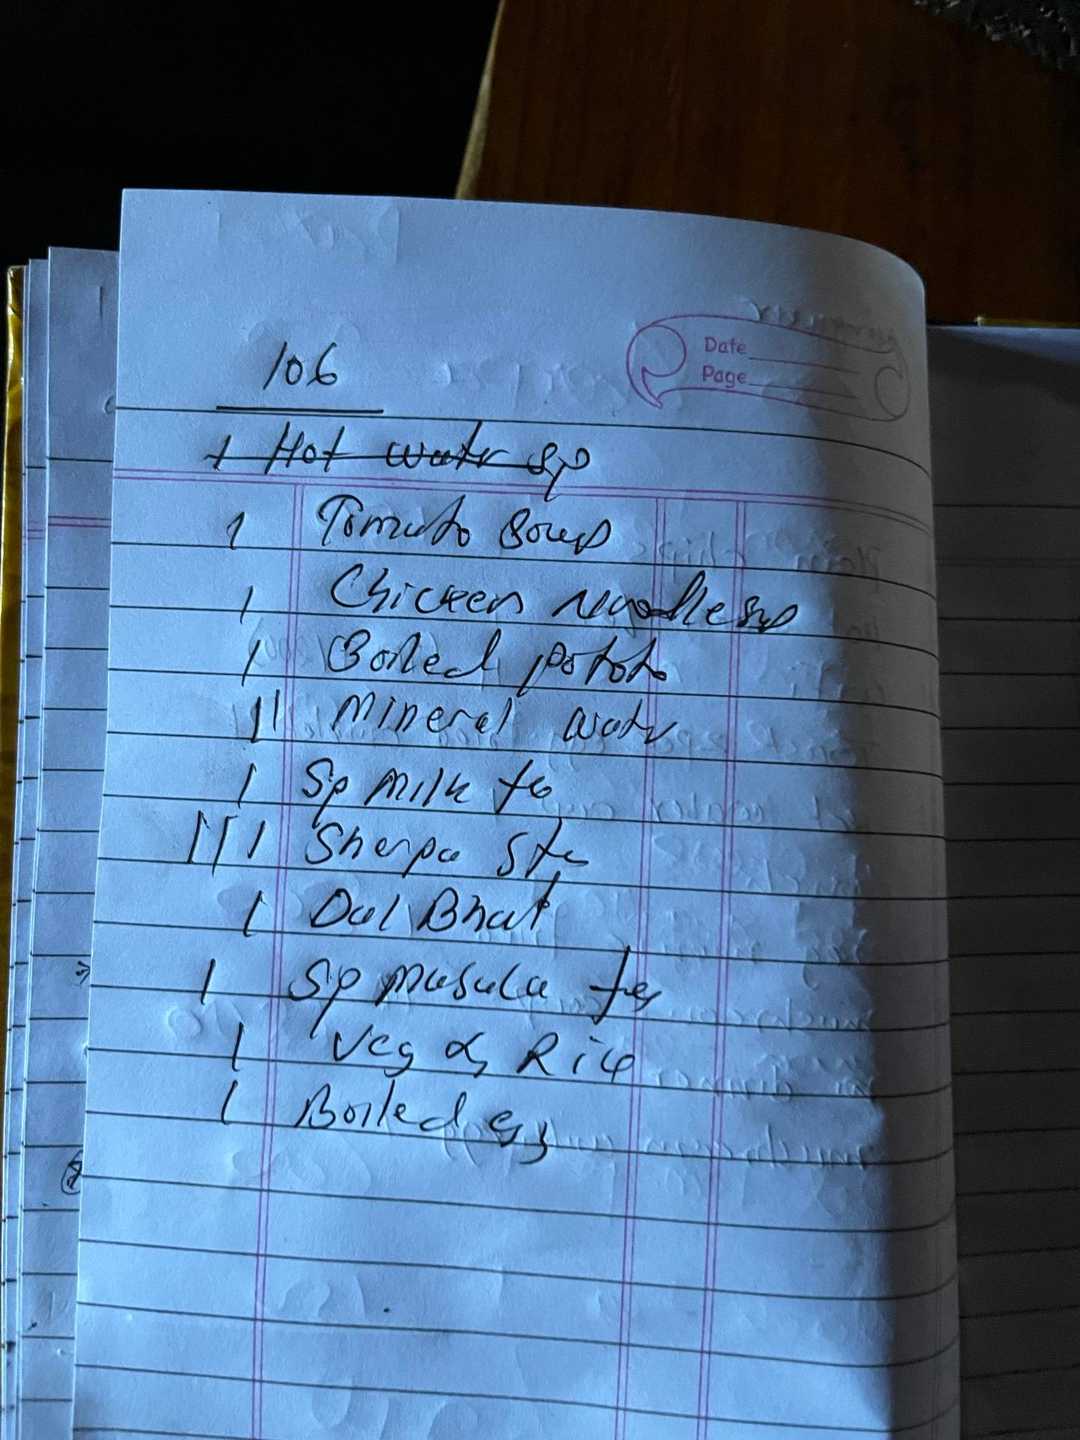 Date
Page
106
1 Hot water sp
1 Tomato Soup
1 Chicken Noodle sup
1 Boiled potato
11 Mineral water
1 Sp Milk te
1111 Sherpa Ste
1 Dal Bhat
1 Sp masala tea
1 Veg & Rice
1 Boiled egg